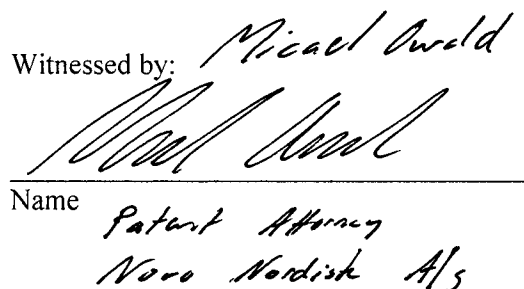 Witnessed by: Micael Owald
Name
Patent Attorney
Novo Nordisk A/S